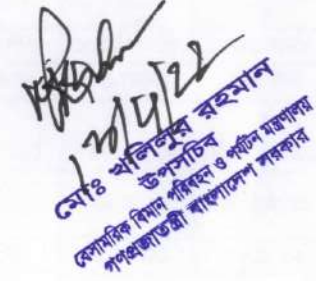 মোঃ খলিলুর রহমান
উপসচিব
বেসামরিক বিমান পরিবহন ও পর্যটন মন্ত্রণালয়
গণপ্রজাতন্ত্রী বাংলাদেশ সরকার